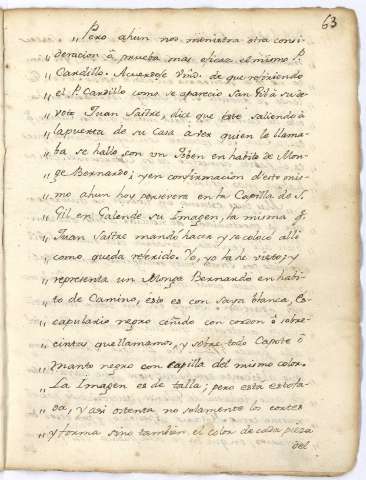 63
„ Pero ahun nos menistra otra consi-
„ deracion ô prueba mas eficaz el mismo P.
„ Cardillo. Acuerdese Vmd. de que refiriendo
„ el P. Cardillo como se aparecio San Gil â su de-
„ voto Juan Sastre, dice que este saliendo â
„ la puerta de su Casa a ver quien le llama-
„ ba se hallo con un Joben en habito de Mon-
„ ge Bernardo; y en confirmacion d'esto mis-
„ mo ahun hoy persevera en la Capilla de S.
„ Gil en Galende su Imagen, la misma q.
„ Juan Sastre mandó hacer y se colocó alli
„ como queda referido. Yo, yo la he visto; y
„ representa un Monge Bernardo en habi-
„ to de Camino, esto es con Saya blanca, Es-
„ capulario negro ceñido con cordon ô sobre-
„ cintas que llamamos, y sobre todo Capote ô
„ manto negro con capilla del mismo color.
„ La Imagen es de talla; pero está estofa-
„ da, y asi ostenta no solamente los cortes
„ y forma sino tambien el color de cada pieza
del